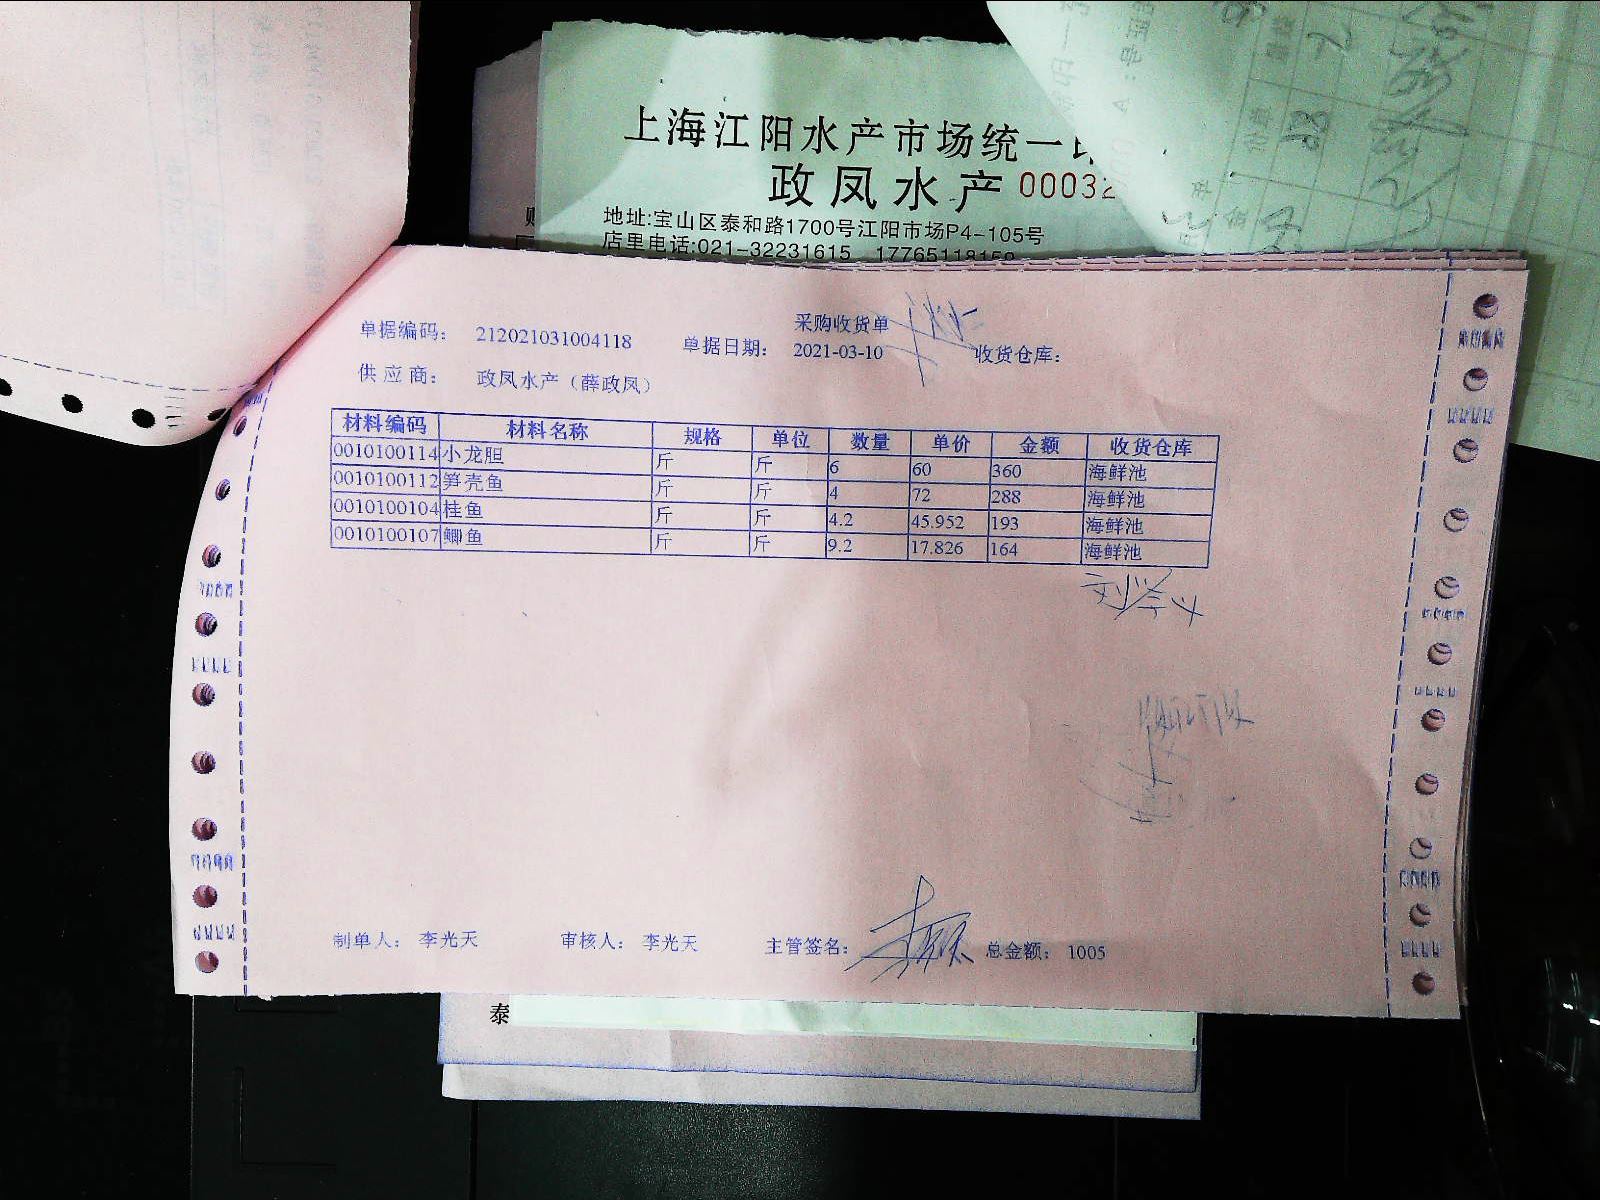 上海江阳水产市场统一
政凤水产 00032
地址:宝山区泰和路1700号江阳市场P4-105号
店里电话:021-32231615 17765118159
采购收货单
单据编码: 212021031004118 单据日期: 2021-03-10 收货仓库:
供应商: 政凤水产（薛政凤）
材料编码 材料名称 规格 单位 数量 单价 金额 收货仓库
0010100114 小龙胆 斤 斤 6 60 360 海鲜池
0010100112 笋壳鱼 斤 斤 4 72 288 海鲜池
0010100104 桂鱼 斤 斤 4.2 45.952 193 海鲜池
0010100107 鲫鱼 斤 斤 9.2 17.826 164 海鲜池
制单人: 李光天 审核人: 李光天 主管签名: 总金额: 1005
泰